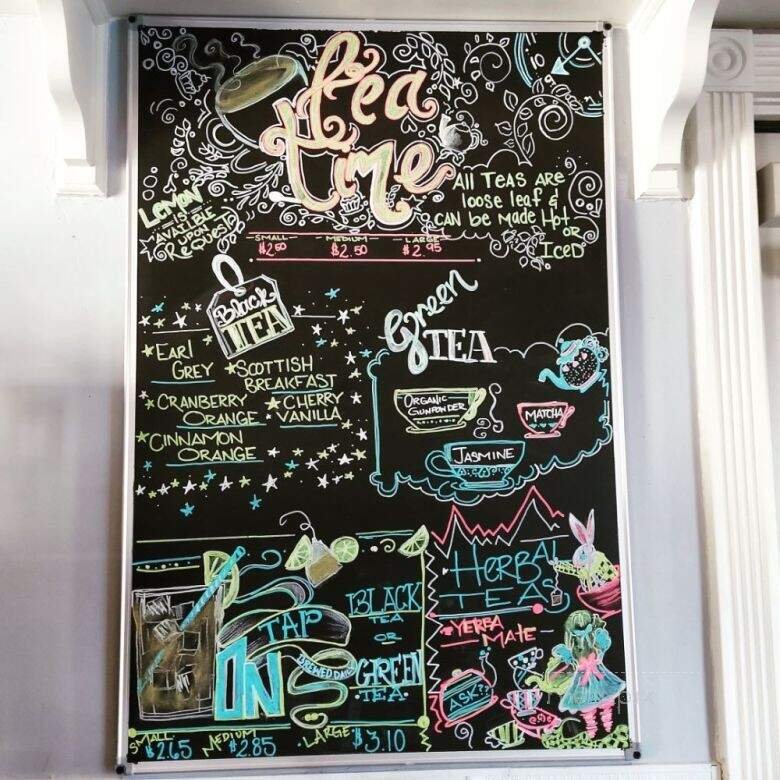 Tea
Time
All Teas are
loose leaf &
can be made Hot
or
Iced
Lemon
is
avaible
upon
Request
Small Medium Large
$2.50 $2.95
Black
TEA
Earl
Grey
Scottish
Breakfast
Cranberry
Orange
Cherry
Vanilla
Cinnamon
Orange
Green
TEA
Organic
Gunpowder
Matcha
Jasmine
ON
TAP
Brewed Daily
BLACK
TEA
OR
GREEN
TEA
Small Medium Large
$2.65 $2.85 $3.10
Herbal
Teas
Yerba
Mate
ASK??